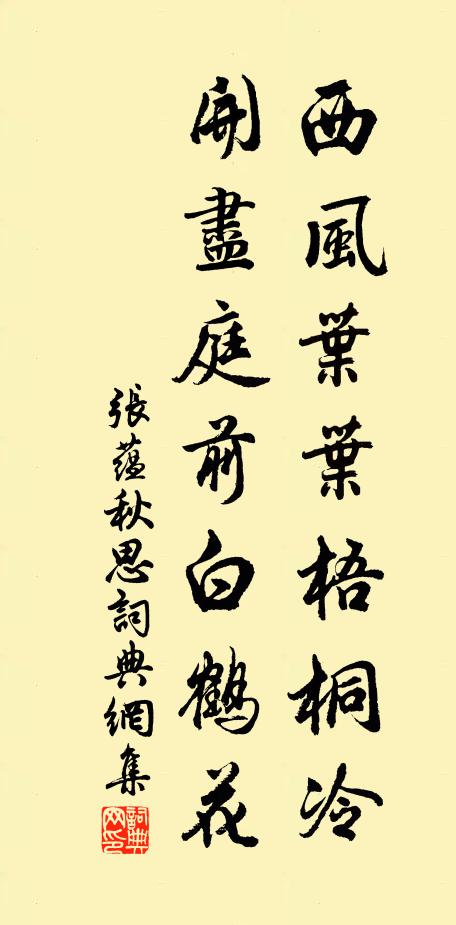 西風葉葉梧桐冷
開盡庭前白鶴花
張蘊秋思詞典網集
詞典網印